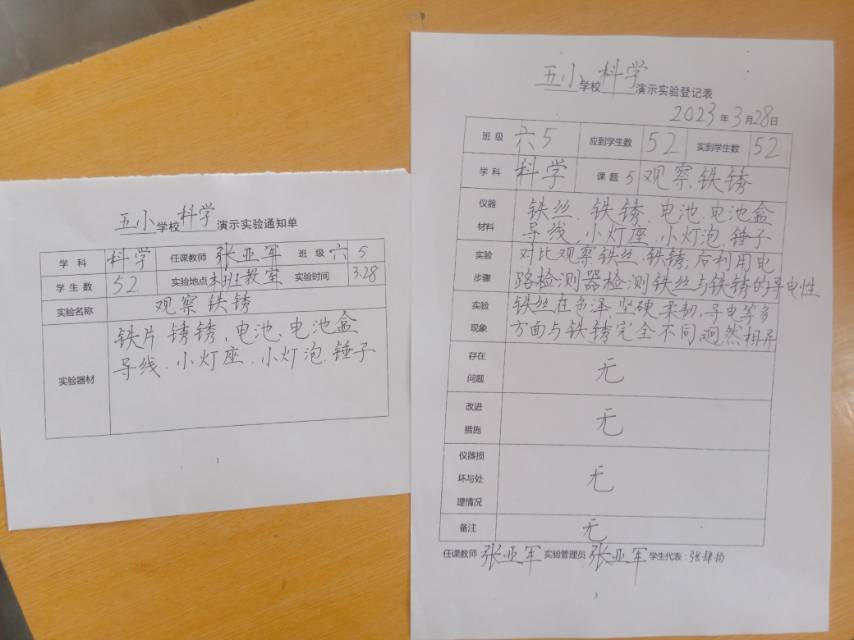 五小学校科学演示实验通知单
学科 科学 任课教师 张亚军 班级 六5
学生数 52 实验地点 本班教室 实验时间 3.28
实验名称 观察铁锈
实验器材 铁片 锈锈,电池、电池盒
导线、小灯座、小灯泡、锤子
1
五小学校科学演示实验登记表
2023年3月28日
班级 六5 应到学生数 52 实到学生数 52
学科 科学 课题 5 观察铁锈
仪器材料 铁丝、铁锈、电池、电池盒
导线、小灯座、小灯泡、锤子
实验步骤 对比观察铁丝、铁锈,后利用电
路检测器检测铁丝与铁锈的导电性
实验现象 铁丝在色泽、坚硬柔韧,导电等多
方面与铁锈完全不同迥然相异
存在问题 无
改进措施 无
仪器损坏与处理情况 无
备注 无
任课教师 张亚军 实验管理员 张亚军 学生代表:张